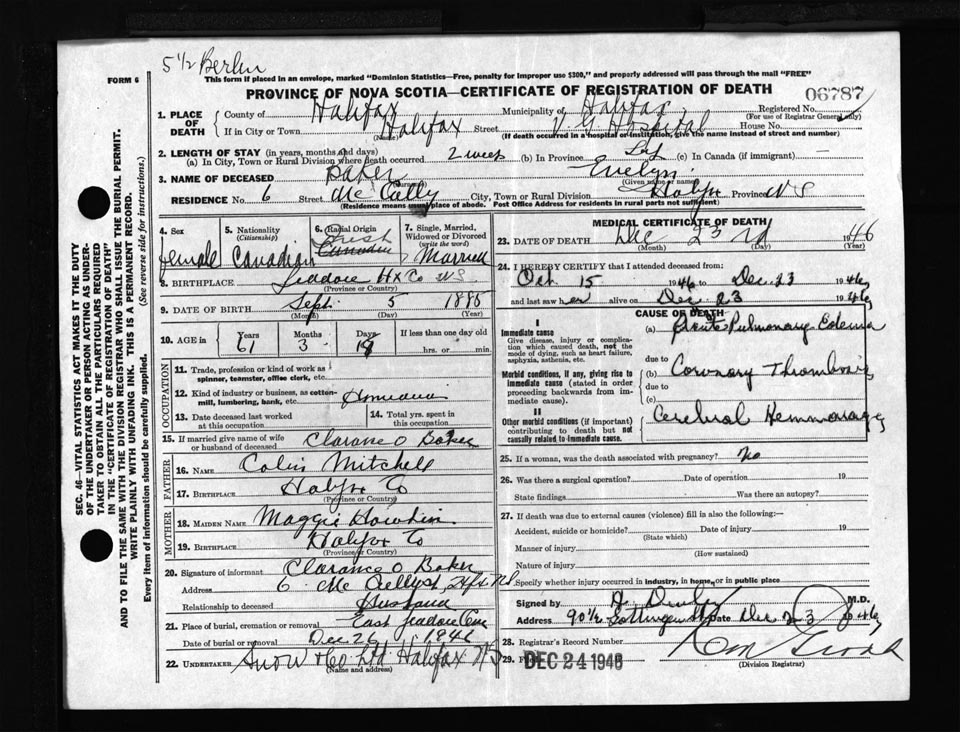 5 1/2 Berlin
FORM 6
This form if placed in an envelope, marked "Dominion Statistics—Free, penalty for improper use $300," and properly addressed will pass through the mail "FREE"
PROVINCE OF NOVA SCOTIA—CERTIFICATE OF REGISTRATION OF DEATH
06787
SEC. 46—VITAL STATISTICS ACT MAKES IT THE DUTY
OF THE UNDERTAKER OR PERSON ACTING AS UNDER-
TAKER TO OBTAIN ALL THE PARTICULARS REQUIRED
IN THE "CERTIFICATE OF REGISTRATION OF DEATH"
AND TO FILE THE SAME WITH THE DIVISION REGISTRAR WHO SHALL ISSUE THE BURIAL PERMIT.
WRITE PLAINLY WITH UNFADING INK. THIS IS A PERMANENT RECORD.
Every item of information should be carefully supplied. (See reverse side for instructions.)
1. PLACE OF DEATH County of Halifax Municipality of Halifax Registered No.
(For use of Registrar General only)
If in City or Town Halifax Street V G Hospital House No.
(Name) (If death occurred in a hospital or institution, give the name instead of street and number)
2. LENGTH OF STAY (in years, months and days)
(a) In City, Town or Rural Division where death occurred 2 weeks (b) In Province Life (c) In Canada (if immigrant) —
3. NAME OF DECEASED Baker Evelyn
(Surname) (Given name or names)
RESIDENCE No. 6 Street McCully City, Town or Rural Division Halifax Province NS
(Residence means usual place of abode. Post Office Address for residents in rural parts not sufficient)
4. Sex 5. Nationality (Citizenship) 6. Racial Origin 7. Single, Married, Widowed or Divorced (write the word)
Female Canadian Canadian Irish Married
8. BIRTHPLACE Jeddore Hx Co NS
(Province or Country)
9. DATE OF BIRTH Sept 5 1885
(Month) (Day) (Year)
10. AGE in Years Months Days If less than one day old
61 3 hrs. or min.
OCCUPATION
11. Trade, profession or kind of work as spinner, teamster, office clerk, etc.
12. Kind of industry or business, as cotton-mill, lumbering, bank, etc.
13. Date deceased last worked at this occupation
14. Total yrs. spent in this occupation
15. If married give name of wife or husband of deceased Clarance O Baker
FATHER
16. NAME Colin Mitchell
17. BIRTHPLACE Halifax Co
(Province or Country)
MOTHER
18. MAIDEN NAME Maggie
19. BIRTHPLACE Halifax Co
(Province or Country)
20. Signature of informant Clarance O Baker
Address 6 McCully St Hfx NS
Relationship to deceased Husband
21. Place of burial, cremation or removal East Jeddore Cem
Date of burial or removal Dec 26 1946
22. UNDERTAKER Snow & Co Ltd Halifax NS
(Name and address)
MEDICAL CERTIFICATE OF DEATH
23. DATE OF DEATH Dec 23rd 1946
(Month) (Day)
24. I HEREBY CERTIFY that I attended deceased from:
Oct 15 1946 to Dec 23 1946
and last saw her alive on Dec 23 1946
CAUSE OF DEATH
I
Immediate cause
Give disease, injury or complication which caused death, not the mode of dying, such as heart failure, asphyxia, asthenia, etc.
(a) Acute Pulmonary Edema
due to
Morbid conditions, if any, giving rise to immediate cause (stated in order proceeding backwards from immediate cause).
(b) Coronary Thrombosis
due to
(c)
II
Other morbid conditions (if important) contributing to death but not causally related to immediate cause.
Cerebral Hemmorage
25. If a woman, was the death associated with pregnancy? no
26. Was there a surgical operation? Date of operation 19
State findings Was there an autopsy?
27. If death was due to external causes (violence) fill in also the following:—
Accident, suicide or homicide? Date of injury 19
(State which)
Manner of injury
(How sustained)
Nature of injury
Specify whether injury occurred in industry, in home, or in public place
Signed by M.D.
Address 90 1/2 Gottingen St Date Dec 23 1946
28. Registrar's Record Number
29. DEC 24 1946
(Division Registrar)